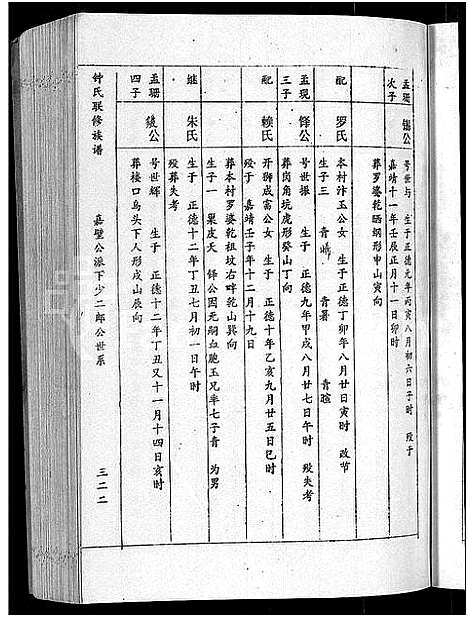 孟珊次子 锡公 号世与 生于 正德元年丙寅八月初六日子时 殁于
嘉靖十一年壬辰正月十一日卯时
葬罗婆乾晒纲形申山寅向
配 罗氏 本村汴玉公女 生于正德丁卯年八月廿日寅时 改节
生子三 青 青署 青暄
孟珊三子 铎公 号世振 生于 正德九年甲戌八月廿七日午时 殁失考
葬岗角坑虎形癸山丁向
配 赖氏 开狮成富公女 生于 正德十年乙亥九月廿五日巳时
殁于 嘉靖壬子年十二月十九日
葬本村罗婆乾祖坟右畔乾山巽向
生子一 果皮夭 铎公因无嗣血胞玉兄半七子青 为男
继 朱氏 生于 正德十二年丁丑七月初一日午时
殁葬失考
孟珊四子 公 号世辉 生于 正德十二年丁丑又十一月十四日亥时
葬楼口乌头下人形戌山辰向
钟氏联修族谱 嘉璧公派下少二郎公世系 三二二